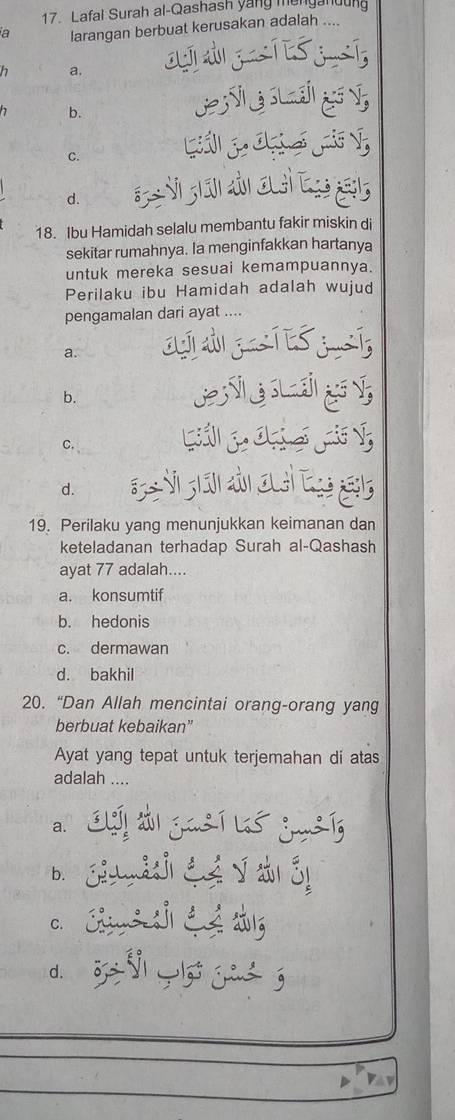 17. Lafal Surah al-Qashash yang mengandung
larangan berbuat kerusakan adalah ....
a. وَأَحْسِنْ كَمَآ أَحْسَنَ اللهُ إِلَيْكَ
b. وَلَا تَبْغِ الْفَسَادَ فِى الْأَرْضِ
c. وَلَا تَنْسَ نَصِيْبَكَ مِنَ الدُّنْيَا
d. وَابْتَغِ فِيْمَآ اٰتٰىكَ اللهُ الدَّارَ الْأٰخِرَةَ
18. Ibu Hamidah selalu membantu fakir miskin di
sekitar rumahnya. Ia menginfakkan hartanya
untuk mereka sesuai kemampuannya.
Perilaku ibu Hamidah adalah wujud
pengamalan dari ayat ....
a. وَأَحْسِنْ كَمَآ أَحْسَنَ اللهُ إِلَيْكَ
b. وَلَا تَبْغِ الْفَسَادَ فِى الْأَرْضِ
c. وَلَا تَنْسَ نَصِيْبَكَ مِنَ الدُّنْيَا
d. وَابْتَغِ فِيْمَآ اٰتٰىكَ اللهُ الدَّارَ الْأٰخِرَةَ
19. Perilaku yang menunjukkan keimanan dan
keteladanan terhadap Surah al-Qashash
ayat 77 adalah....
a. konsumtif
b. hedonis
c. dermawan
d. bakhil
20. “Dan Allah mencintai orang-orang yang
berbuat kebaikan”
Ayat yang tepat untuk terjemahan di atas
adalah ....
a. وَأَحْسِنْ كَمَا أَحْسَنَ اللهُ إِلَيْكَ
b. إِنَّ اللهَ لَا يُحِبُّ الْمُفْسِدِيْنَ
c. وَاللهُ يُحِبُّ الْمُحْسِنِيْنَ
d. وَ حُسْنَ ثَوَابِ الْأَخِرَةِ